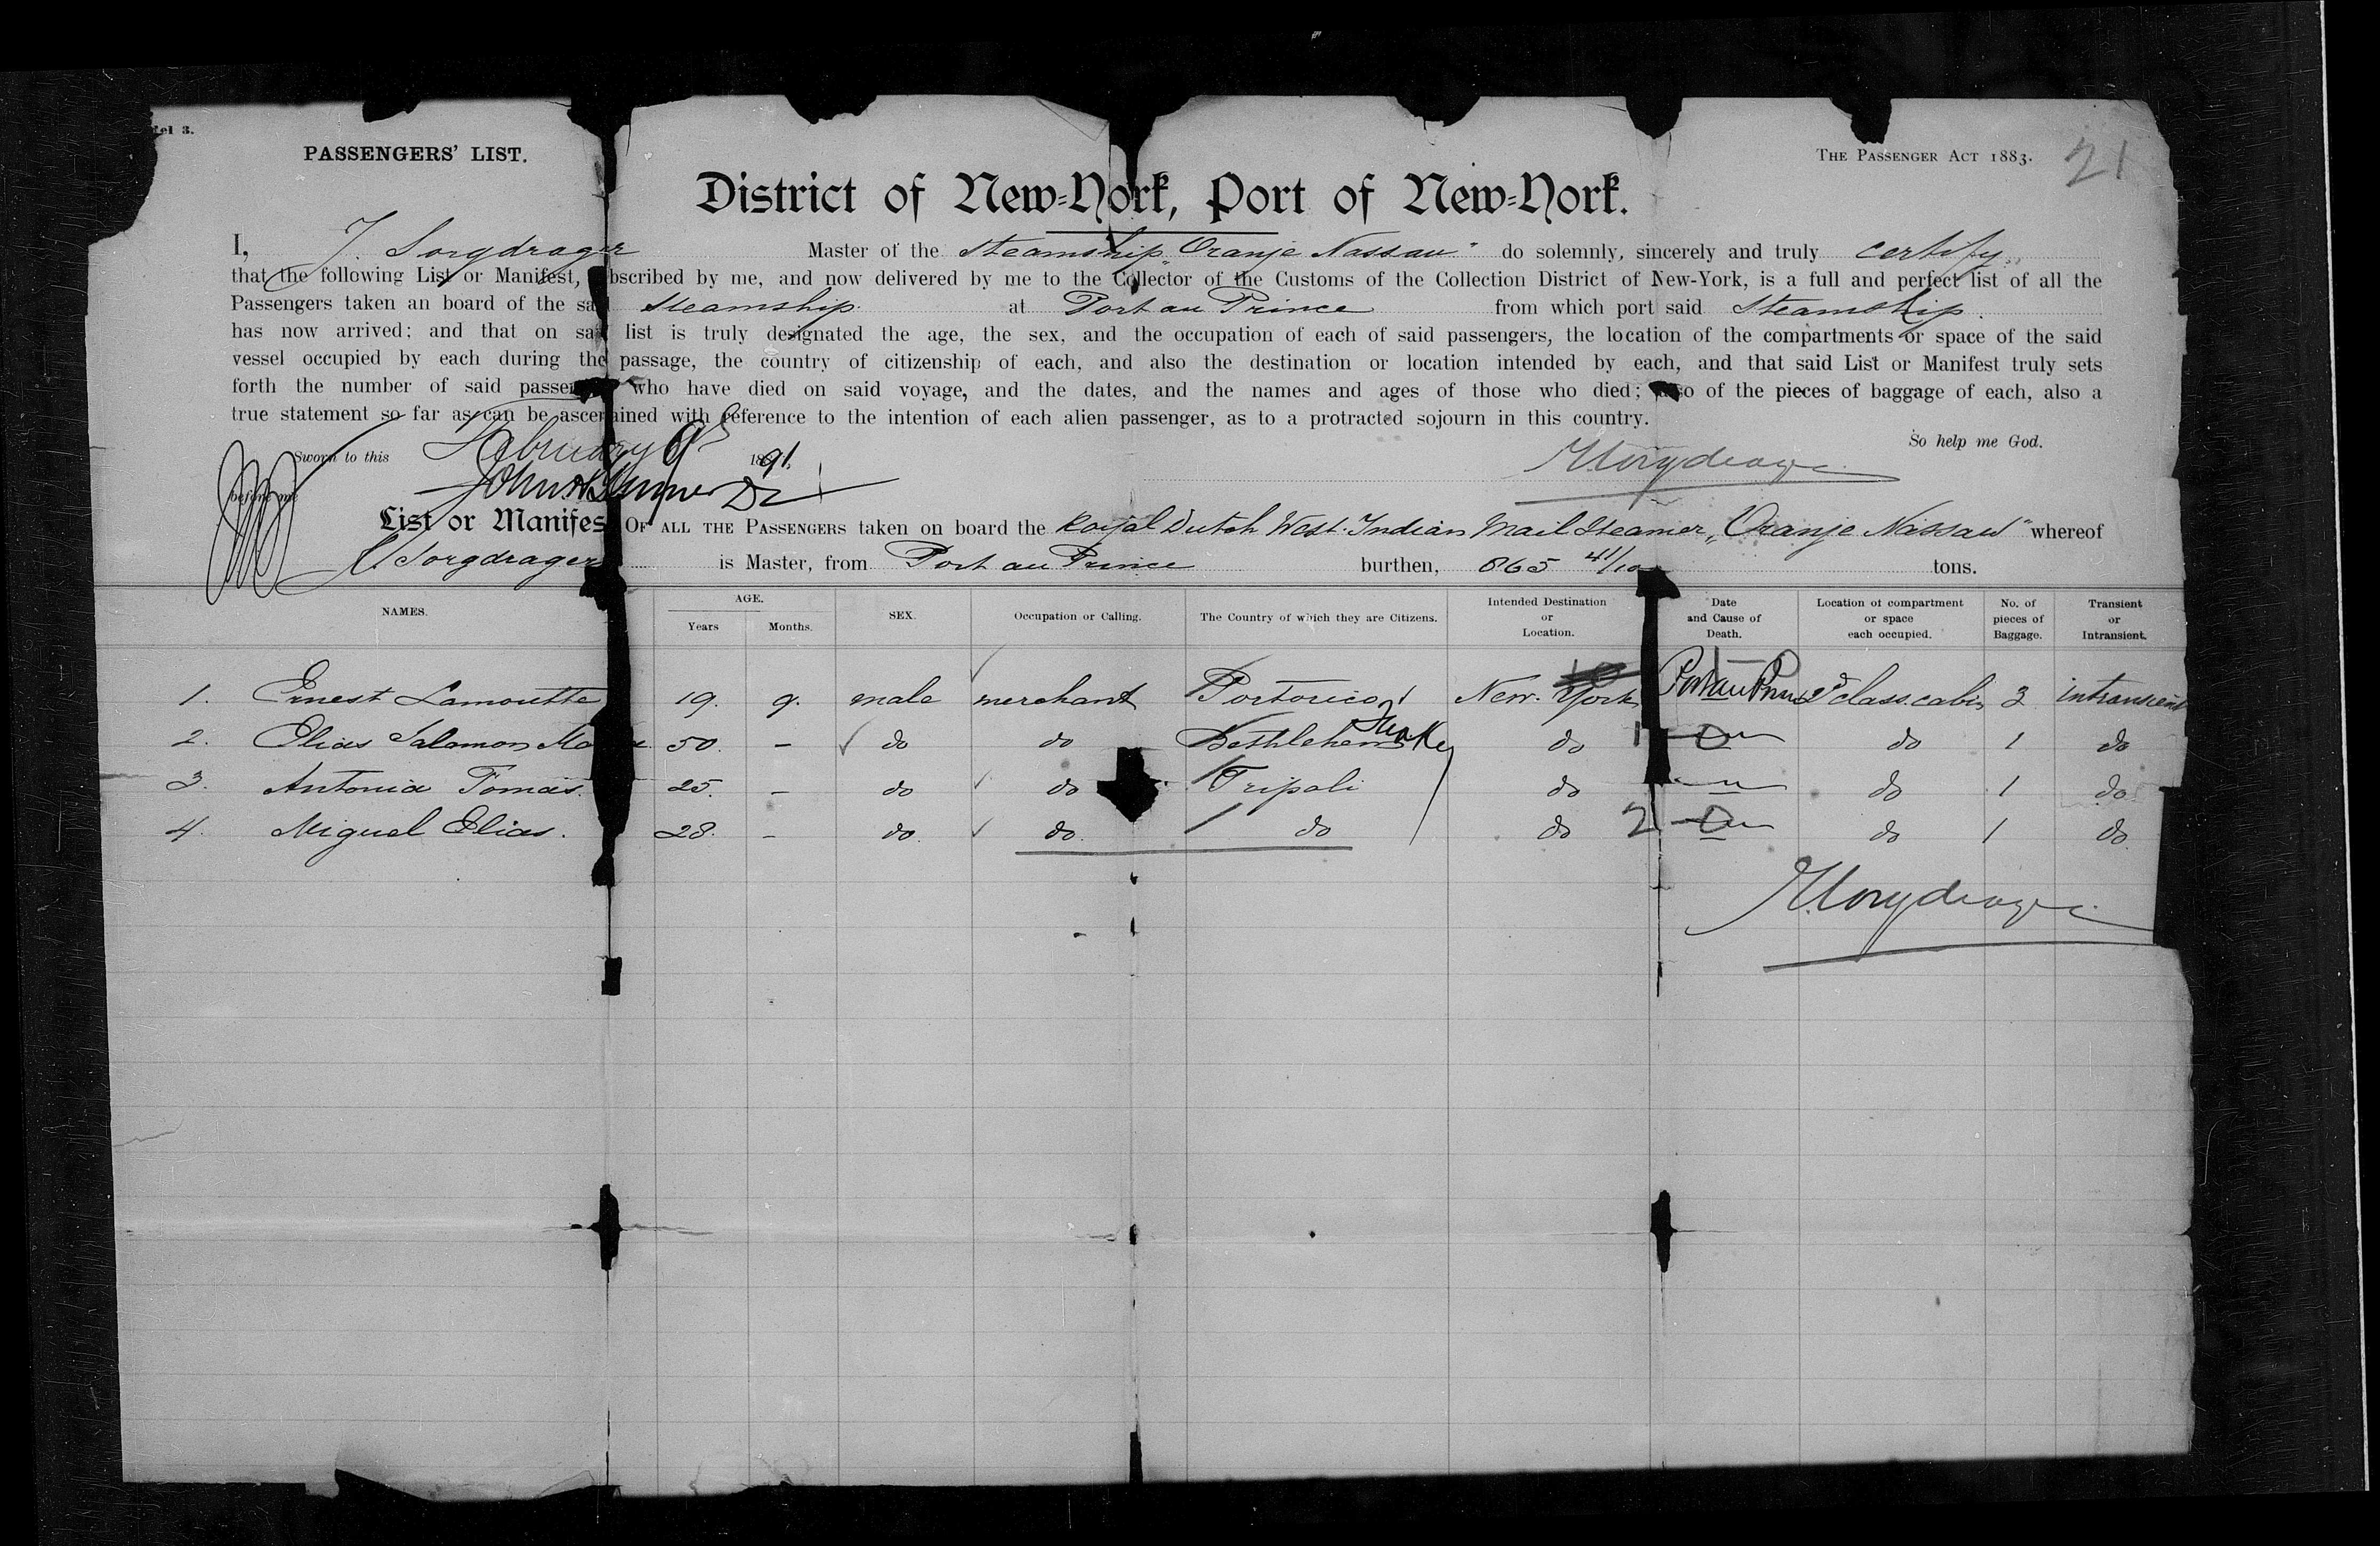 PASSENGERS' LIST.
THE PASSENGER ACT 1883.
21
District of New-York, Port of New-York.
I, J. Sorgdrager Master of the Steamship „Oranje Nassau" do solemnly, sincerely and truly certify
that the following List or Manifest, bscribed by me, and now delivered by me to the Collector of the Customs of the Collection District of New-York, is a full and perfect list of all the
Passengers taken an board of the sa Steamship at Port au Prince from which port said Steamship.
has now arrived; and that on sai list is truly designated the age, the sex, and the occupation of each of said passengers, the location of the compartments or space of the said
vessel occupied by each during the passage, the country of citizenship of each, and also the destination or location intended by each, and that said List or Manifest truly sets
forth the number of said passen who have died on said voyage, and the dates, and the names and ages of those who died; also of the pieces of baggage of each, also a
true statement so far as can be ascertained with reference to the intention of each alien passenger, as to a protracted sojourn in this country.
So help me God.
Sworn to this February 9 1891
before me
List or Manifes OF ALL THE PASSENGERS taken on board the Royal Dutch West-Indian Mail Steamer „Oranje Nassau" whereof
J. Sorgdrager is Master, from Port au Prince burthen, 865 41/100 tons.
NAMES. AGE. Years Months. SEX. Occupation or Calling. The Country of which they are Citizens. Intended Destination or Location. Date and Cause of Death. Location of compartment or space each occupied. No. of pieces of Baggage. Transient or Intransient.
1. Ernest Lamoutte 19. 9. male merchant Portorico New-York Port au Prince 2d class cabin 3 intransient
2. Elias Salomon 50. — do do Bethlehem Turkey do 1 do 1 do
3. Antonia Tomas. 25. — do do Tripoli do do 1 do
4. Miguel Elias. 28. — do do do do 2 do 1 do